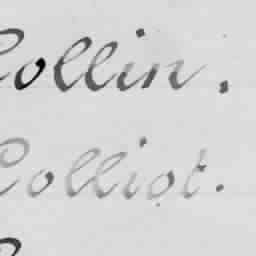 Collin.
Colliot.